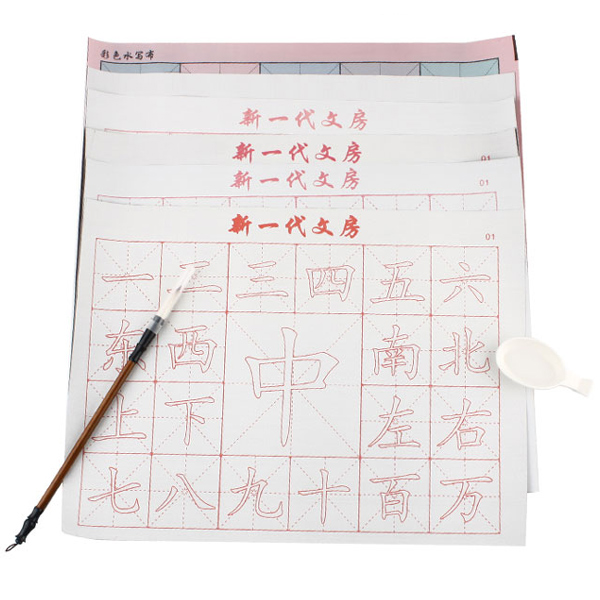 彩色水写布
新一代文房
新一代文房
01
新一代文房
01
新一代文房
01
一二三四五六
东西中南北
上下左右
七八九十百万